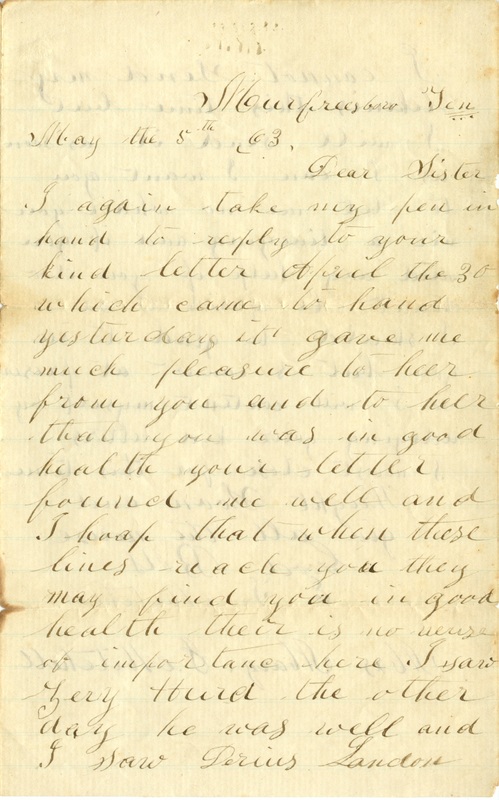 Murfreesboro Ten
May the 5th 63.
Dear Sister
I again take my pen in
hand to reply to your
kind letter April the 30
which came to hand
yesturday it gave me
much pleasure to heer
from you and to heer
that you was in good
health your letter
found me well and
I hoap that when these
lines reach you they
may find you in good
health their is no
of importance here I saw
Hurd the other
day he was well and
I saw Landon